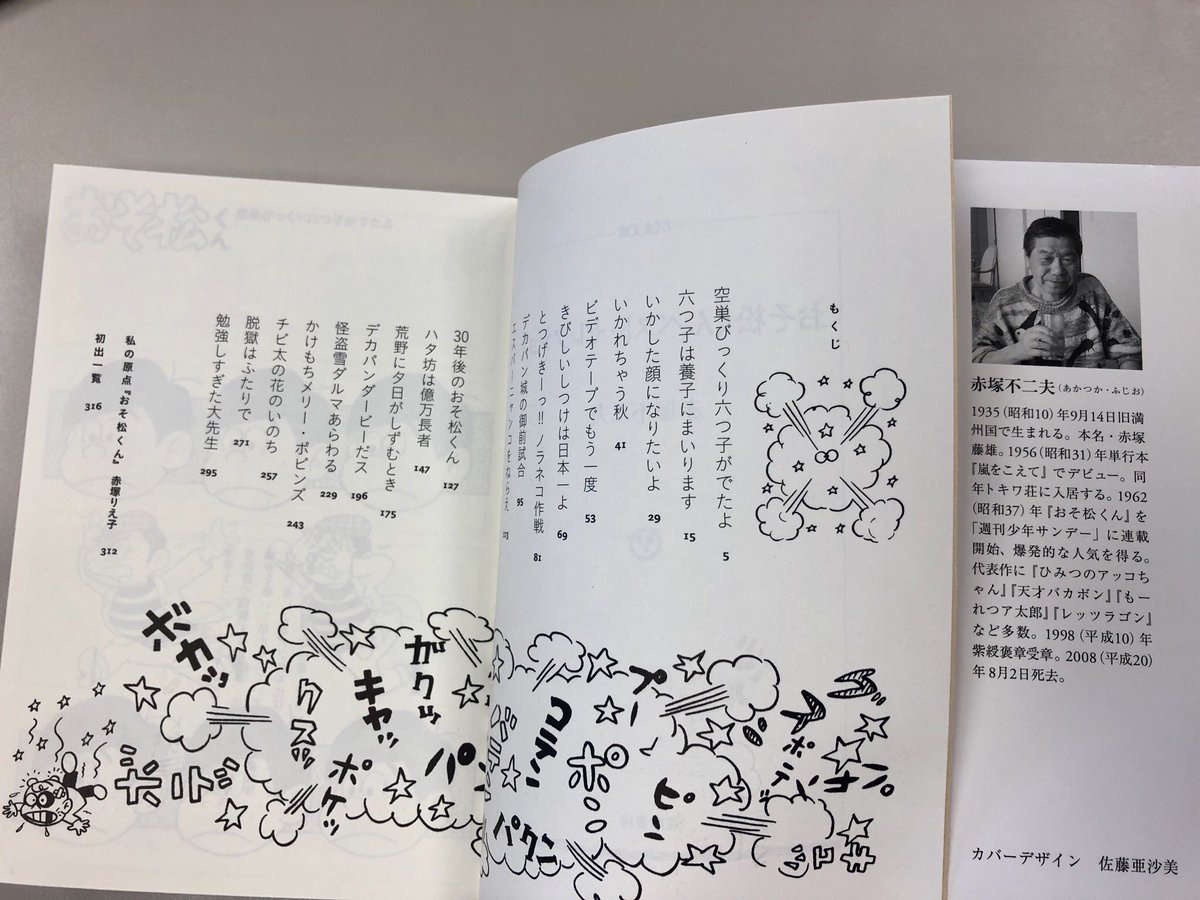 もくじ
空巣びっくり六つ子がでたよ 5
六つ子は養子にまいります 15
いかした顔になりたいよ 29
いかれちゃう秋 41
ビデオテープでもう一度 53
きびしいしつけは日本一よ 69
とつげきーっ!! ノラネコ作戦 81
デカパン城の御前試合 95
エスパーニャンコをねらえ 113
30年後のおそ松くん 127
ハタ坊は億万長者 147
荒野に夕日がしずむとき 175
デカパンダービーだス 196
怪盗雪ダルマあらわる 229
かけもちメリー・ポピンズ 243
チビ太の花のいのち 257
脱獄はふたりで 271
勉強しすぎた大先生 295
私の原点『おそ松くん』 赤塚りえ子 312
初出一覧 316
ボカッ
ガクッ
キャッ
クスッ
ポケッ
ドカン
ポン
ピン
パクッ
赤塚不二夫(あかつか・ふじお)
1935(昭和10)年9月14日旧満
州国で生まれる。本名・赤塚
藤雄。1956(昭和31)年単行本
『嵐をこえて』でデビュー。同
年トキワ荘に入居する。1962
(昭和37)年『おそ松くん』を
「週刊少年サンデー」に連載
開始、爆発的な人気を得る。
代表作に『ひみつのアッコち
ゃん』『天才バカボン』『もー
れつア太郎』『レッツラゴン』
など多数。1998(平成10)年
紫綬褒章受章。2008(平成20)
年8月2日死去。
カバーデザイン 佐藤亜沙美